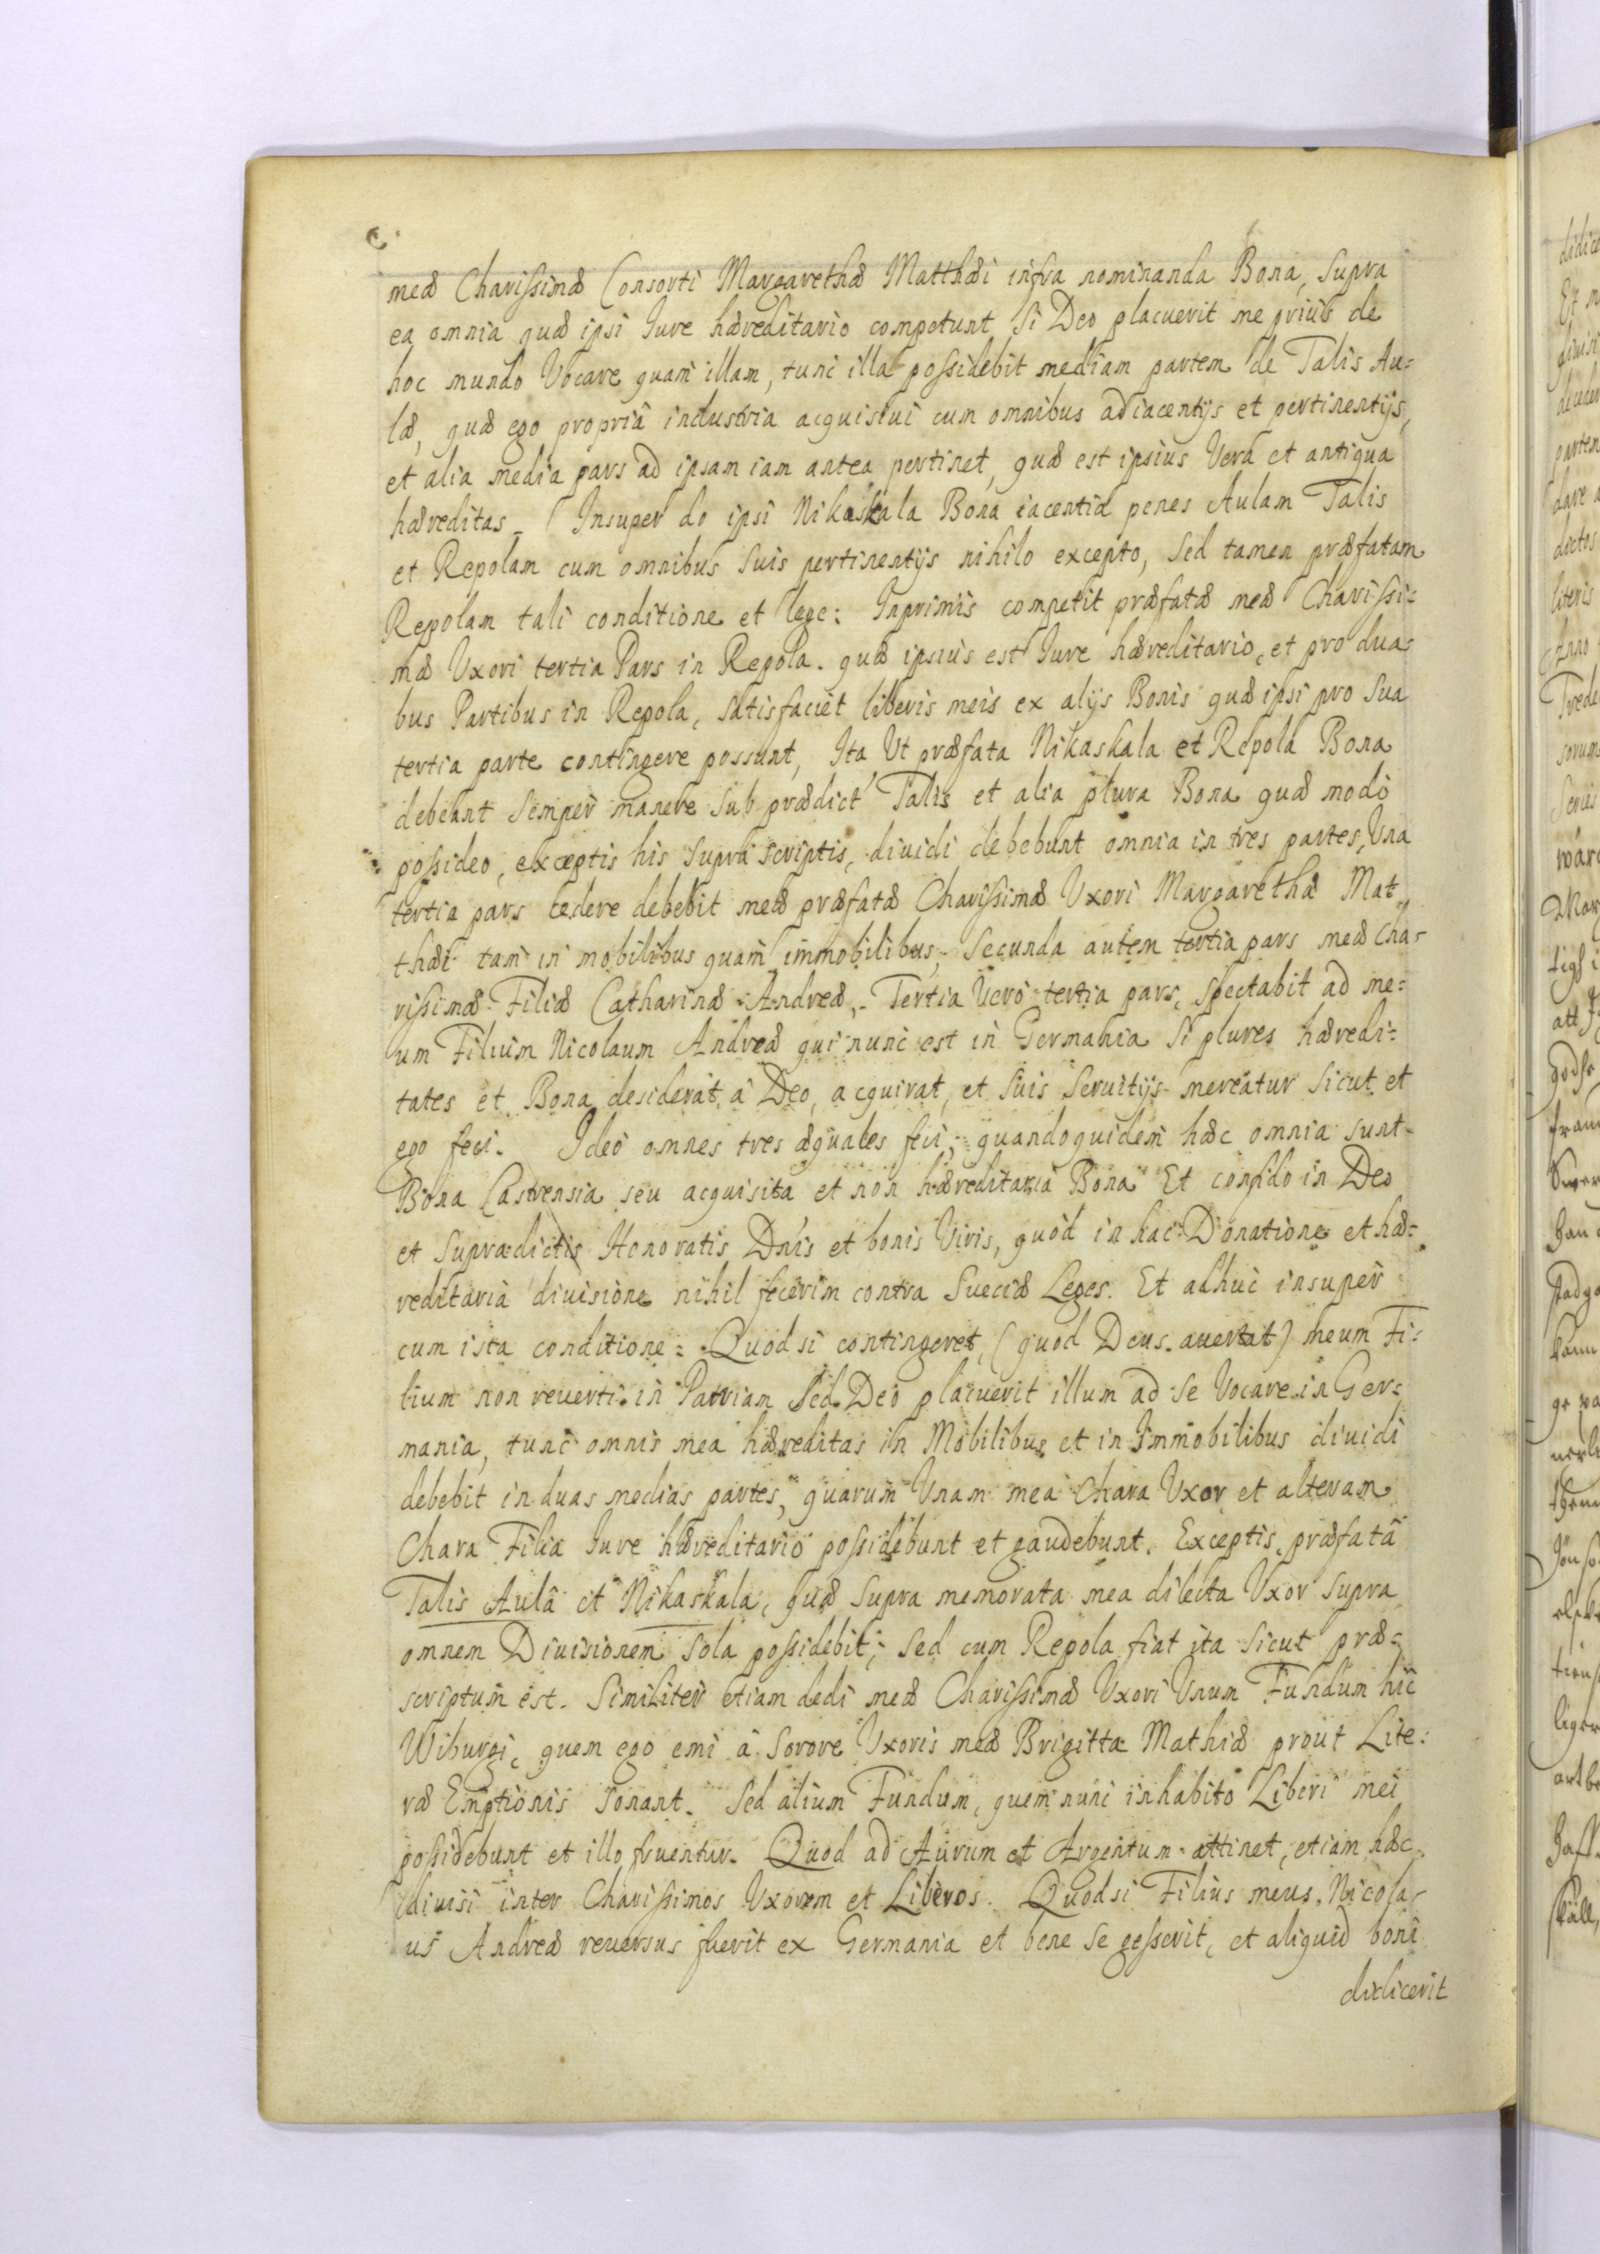 meæ Charissimæ Consorti Margarethæ Matthæi infra nominanda Bona, supra
ea omnia quæ ipsi Iure hæreditario competunt, si Deo placuerit me prius de
hoc mundo Vocare quam illam, tunc illa possidebit mediam partem de Talis Au-
læ, quæ ego propriâ industria acquisiui cum omnibus adiacentijs et pertinentijs,
et alia media pars ad ipsam iam antea pertinet, quæ est ipsius Vera et antiqua
hæreditas. Insuper do ipsi Nikaskala Bona iacentia penes Aulam Talis
et Repolam cum omnibus suis pertinentijs nihilo excepto, sed tamen præfatam
Repolam tali conditione et lege: Inprimis competit præfatæ meæ Charissi-
mæ Uxori tertia Pars in Repola. quæ ipsius est Iure hæreditario, et pro dua-
bus Partibus in Repola, satisfaciet liberis meis ex alijs Bonis quæ ipsi pro sua
tertia parte contingere possunt, Ita Ut præfata Nikaskala et Repola Bona
debeant semper manere sub prædict Talis et alia plura Bona quæ modo
possideo, exceptis his supra scriptis, diuidi debebunt omnia in tres partes, Una
tertia pars cedere debebit meæ præfatæ Charissimæ Uxori Margarethæ Mat-
thæi tam in mobilibus quam immobilibus, Secunda autem tertia pars meæ Cha-
rissimæ Filiæ Catharinæ Andreæ, Tertia Uero tertia pars, spectabit ad me-
um Filium Nicolaum Andreæ qui nunc est in Germania Si plures hæredi-
tates et Bona desiderat, à Deo, acquirat, et suis seruitijs mereatur sicut et
ego feci. Ideo omnes tres æquales feci, quandoquidem hæc omnia sunt
Bona Castrensia seu acquisita et non hæreditaria Bona Et confido in Deo
et supradictis Honoratis Dnis et bonis Viris, quòd in hac Donatione et hæ-
reditaria diuisione nihil fecerim contra Sueciæ Leges. Et adhuc insuper
cum ista conditione: Quod si contingeret, (quod Deus auertat) meum Fi-
lium non reuerti in Patriam sed Deo placuerit illum ad se Vocare in Ger-
mania, tunc omnis mea hæreditas in Mobilibus et in Immobilibus diuidi
debebit in duas medias partes, quarum Unam mea Chara Uxor et alteram
Chara Filia Iure hæreditario possidebunt et gaudebunt. Exceptis præfatâ
Talis Aulâ et Nikaskala, quæ supra memorata mea dilecta Uxor supra
omnem Diuisionem sola possidebit; sed cum Repola fiat ita sicut præ-
scriptum est. Similiter etiam dedi meæ Charissimæ Uxori Unum Fundum hic
Wiburgi, quem ego emi à sorore Uxoris meæ Brigitta Mathiæ prout Lite-
ræ Emptionis sonant. Sed alium Fundum, quem nunc inhabito Liberi mei
possidebunt et illo fruentur. Quod ad Aurum et Argentum attinet, etiam hæc
diuisi inter Charissimos Uxorem et Liberos. Quod si Filius meus Nicola-
us Andreæ reuersus fuerit ex Germania et bene se gesserit, et aliquid boni
didicerit